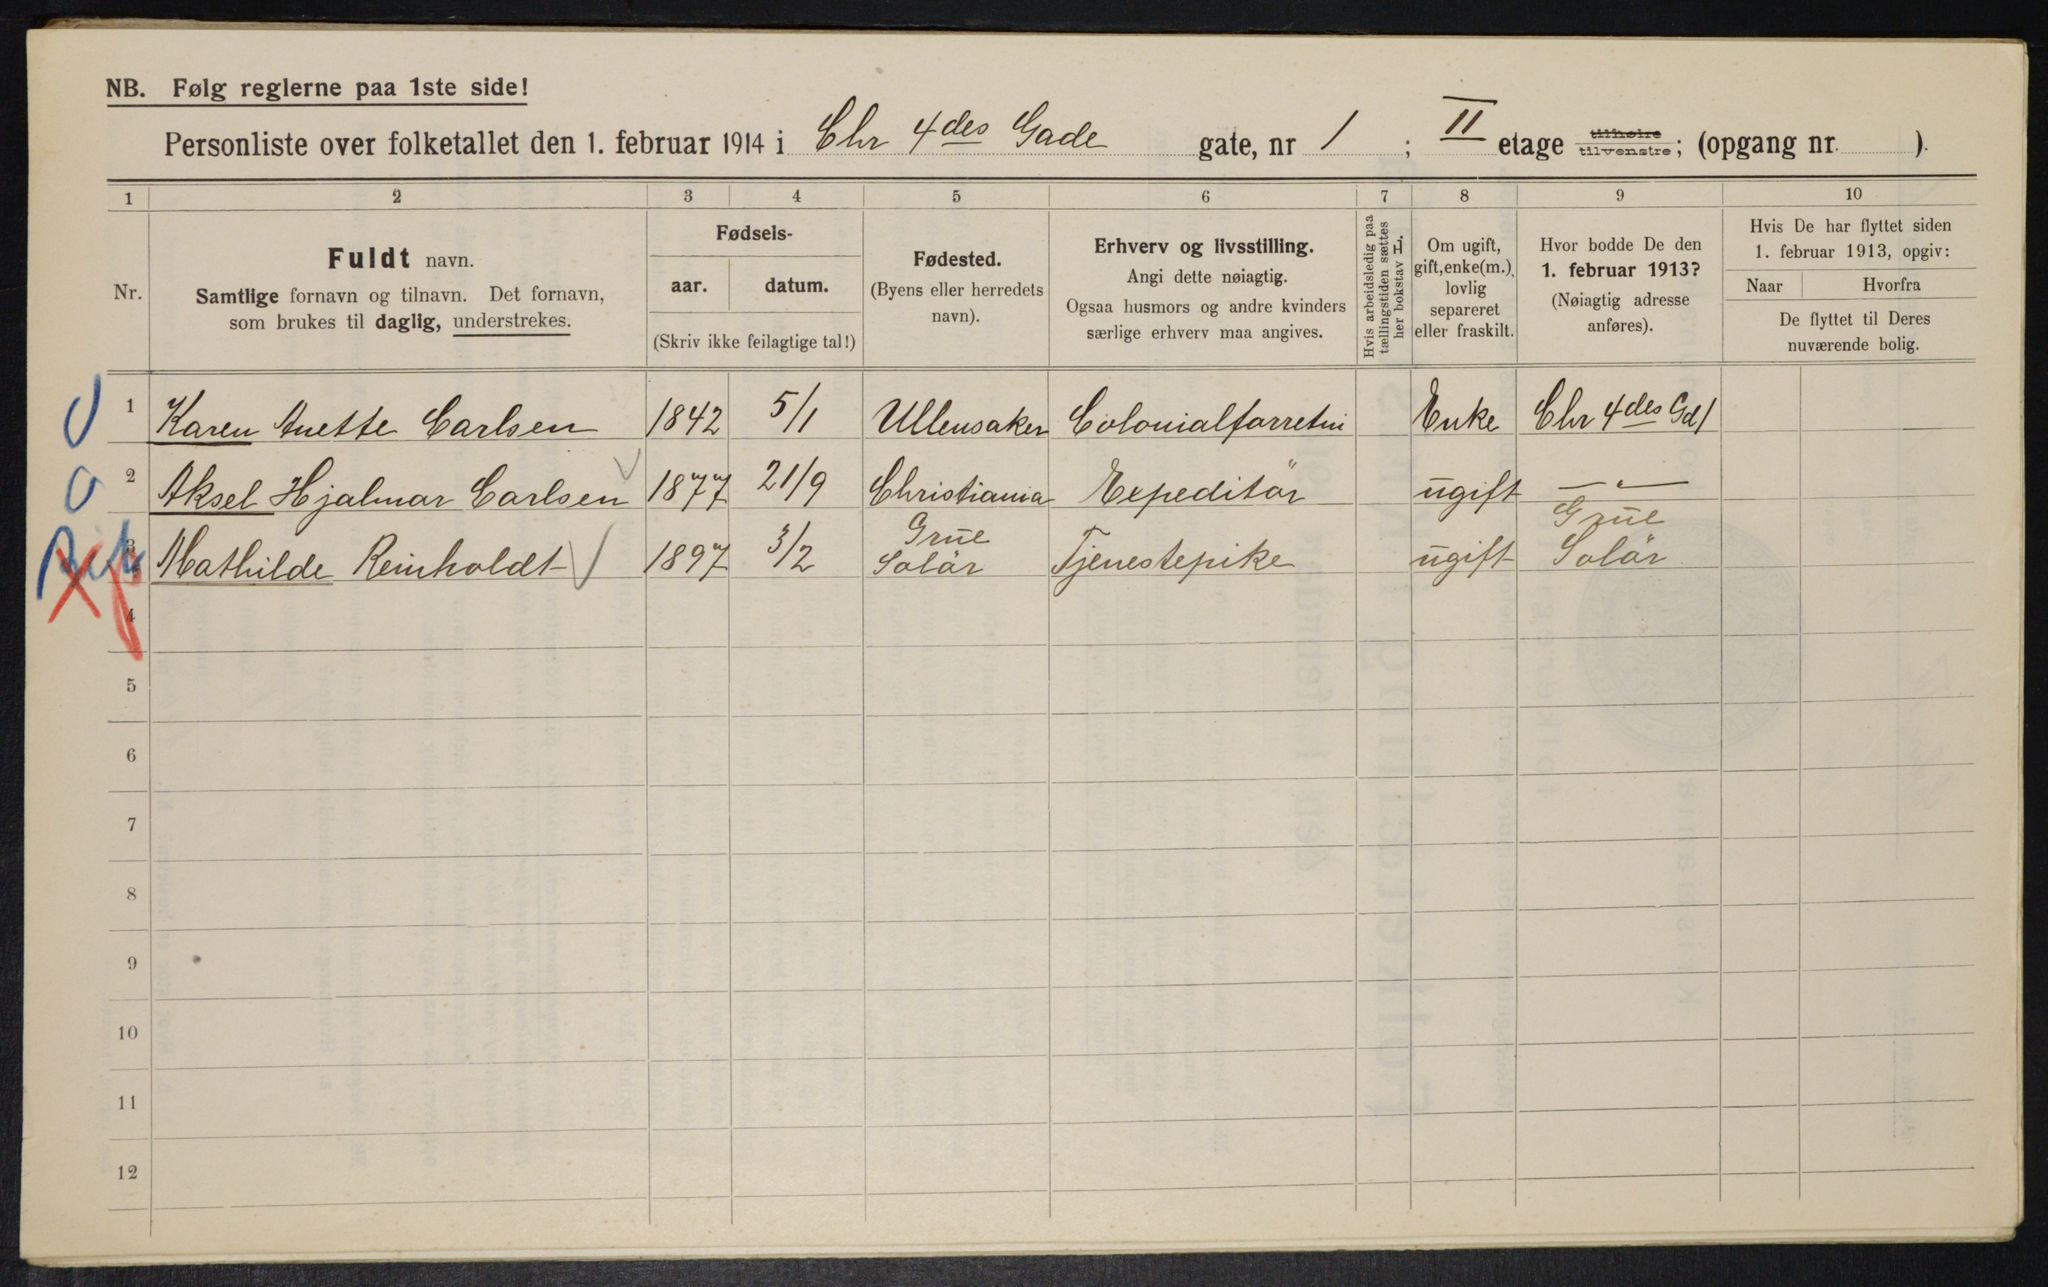 NB. Følg reglerne paa 1ste side!
Personliste over folketallet den 1. februar 1914 i Chr 4des Gade gate, nr 1 ; II etage tilhøire tilvenstre; (opgang nr. ).
1 2 3 4 5 6 7 8 9 10
Nr.
Fuldt navn.
Samtlige fornavn og tilnavn. Det fornavn,
som brukes til daglig, understrekes.
Fødsels-
aar. datum.
(Skriv ikke feilagtige tal!)
Fødested.
(Byens eller herredets
navn).
Erhverv og livsstilling.
Angi dette nøiagtig.
Ogsaa husmors og andre kvinders
særlige erhverv maa angives.
Hvis arbeidsledig paa
tællingstiden sættes
her bokstav L.
Om ugift,
gift, enke(m.),
lovlig
separeret
eller fraskilt.
Hvor bodde De den
1. februar 1913?
(Nøiagtig adresse
anføres).
Hvis De har flyttet siden
1. februar 1913, opgiv:
Naar Hvorfra
De flyttet til Deres
nuværende bolig.
1 Karen Anette Carlsen 1842 5/1 Ullensaker Colonialforretni Enke Chr 4des Gd 1
2 Aksel Hjalmar Carlsen 1877 21/9 Christiania Expeditör ugift — „ —
3 Mathilde Reinholdt 1897 3/2 Grue Solör Tjenestepike ugift Grue Solör
4
5
6
7
8
9
10
11
12